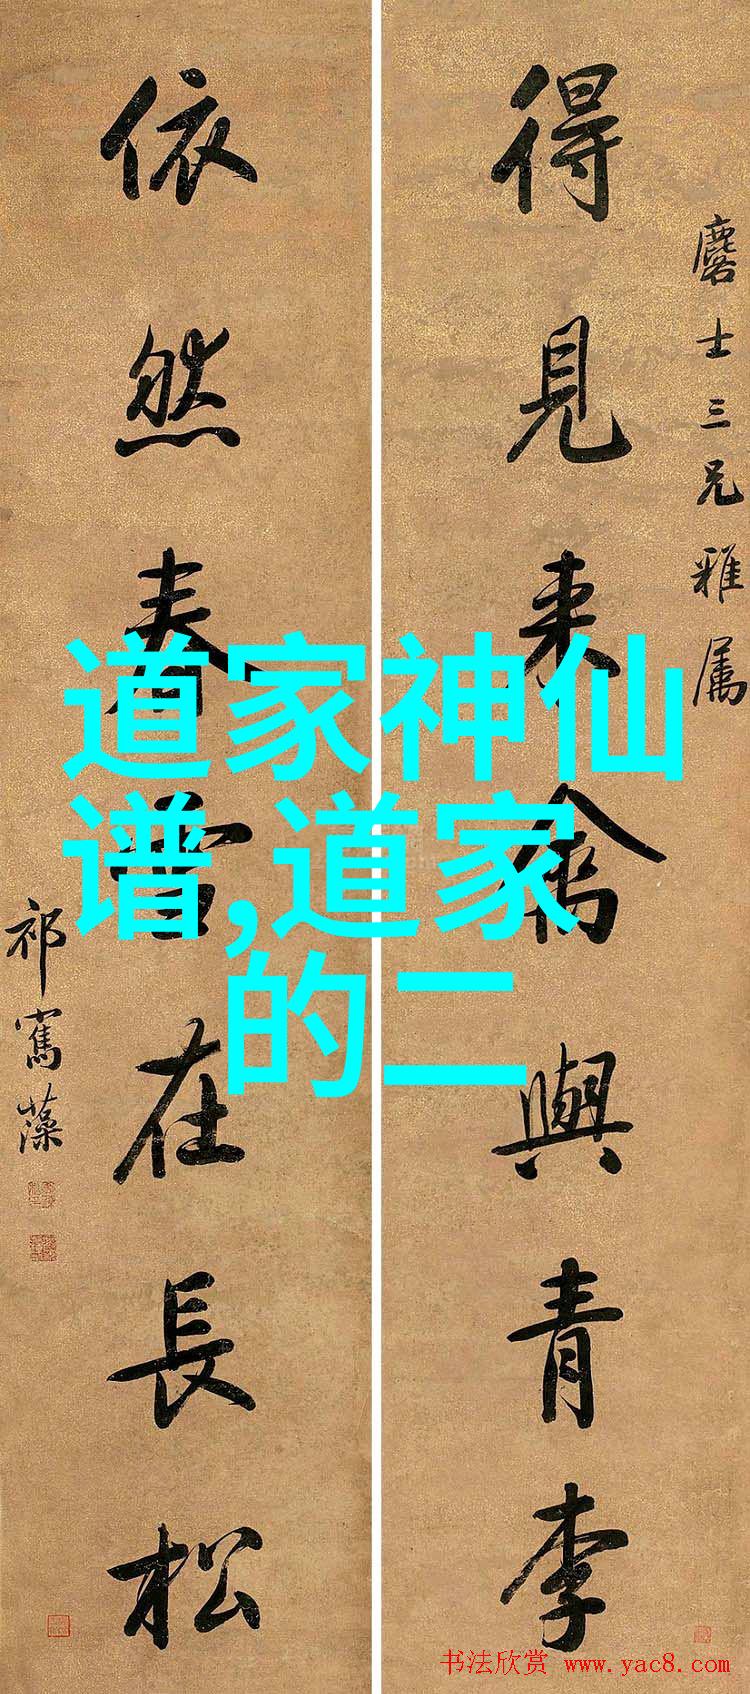 麐士三兄雅属
得見来禽與青李
依然春雪在長松
祁寯藻
道家神仙
谱,道家
的二
书法欣赏 www.yac8.com